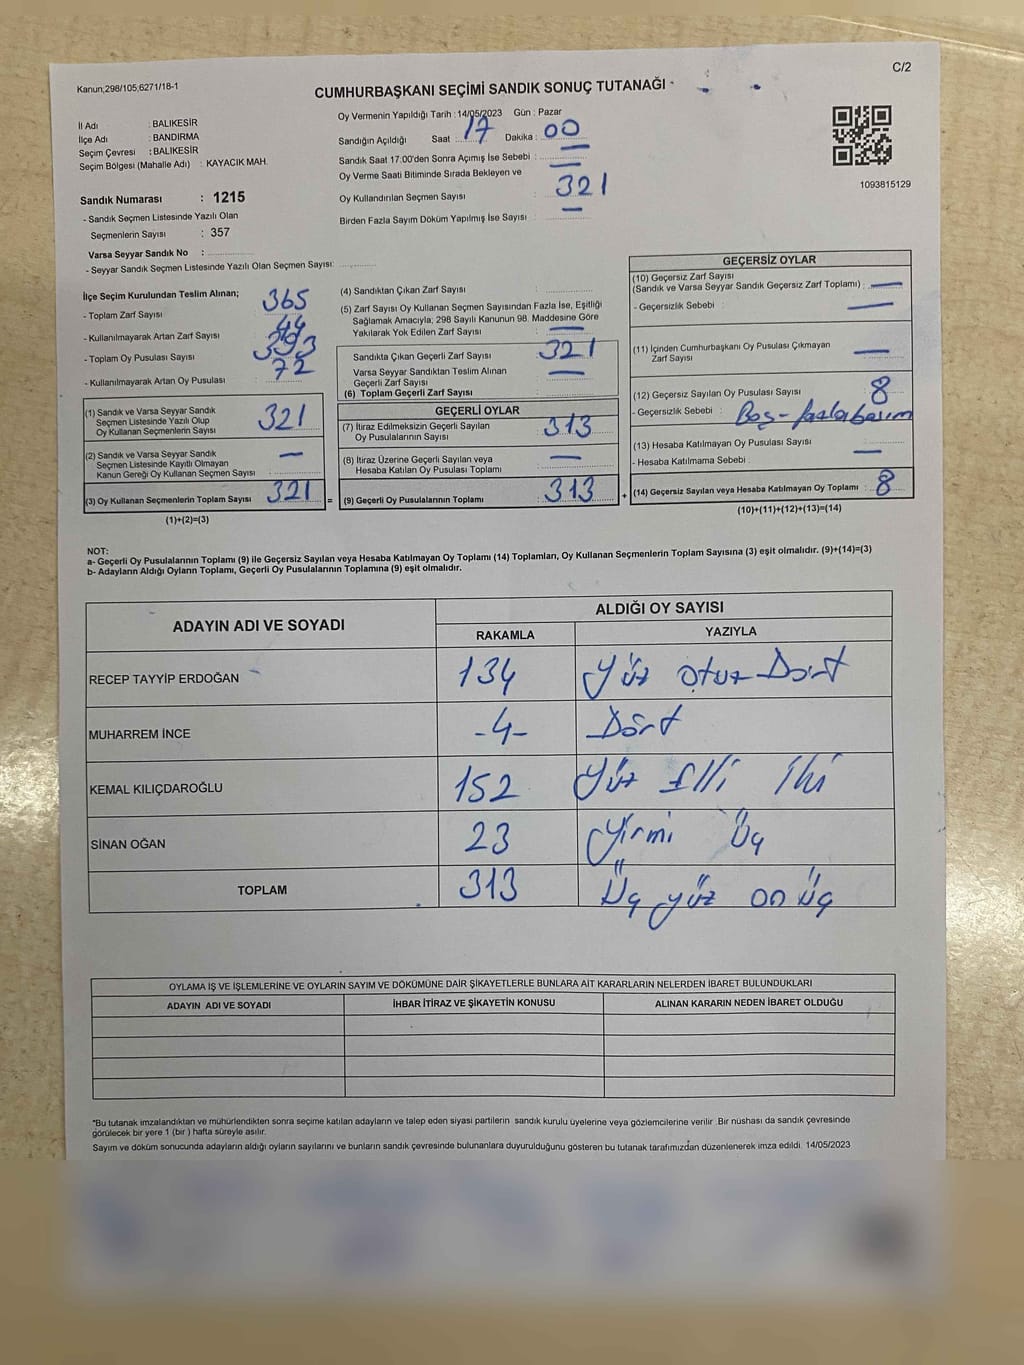 C/2
Kanun;298/105;6271/18-1
CUMHURBAŞKANI SEÇİMİ SANDIK SONUÇ TUTANAĞI
İl Adı : BALIKESİR
İlçe Adı : BANDIRMA
Seçim Çevresi : BALIKESİR
Seçim Bölgesi (Mahalle Adı) : KAYACIK MAH.
Sandık Numarası : 1215
- Sandık Seçmen Listesinde Yazılı Olan
Seçmenlerin Sayısı : 357
Varsa Seyyar Sandık No :
- Seyyar Sandık Seçmen Listesinde Yazılı Olan Seçmen Sayısı:
Oy Vermenin Yapıldığı Tarih : 14/05/2023 Gün : Pazar
Sandığın Açıldığı Saat : 17 Dakika : 00
Sandık Saat 17:00'den Sonra Açımış İse Sebebi : —
Oy Verme Saati Bitiminde Sırada Bekleyen ve —
Oy Kullandırılan Seçmen Sayısı : 321
Birden Fazla Sayım Döküm Yapılmış İse Sayısı : —
1093815129
İlçe Seçim Kurulundan Teslim Alınan;
- Toplam Zarf Sayısı 365
- Kullanılmayarak Artan Zarf Sayısı 44
- Toplam Oy Pusulası Sayısı 393
- Kullanılmayarak Artan Oy Pusulası 72
(1) Sandık ve Varsa Seyyar Sandık
Seçmen Listesinde Yazılı Olup
Oy Kullanan Seçmenlerin Sayısı 321
(2) Sandık ve Varsa Seyyar Sandık
Seçmen Listesinde Kayıtlı Olmayan
Kanun Gereği Oy Kullanan Seçmen Sayısı —
(3) Oy Kullanan Seçmenlerin Toplam Sayısı 321 =
(1)+(2)=(3)
(4) Sandıktan Çıkan Zarf Sayısı :
(5) Zarf Sayısı Oy Kullanan Seçmen Sayısından Fazla İse, Eşitliği
Sağlamak Amacıyla; 298 Sayılı Kanunun 98. Maddesine Göre
Yakılarak Yok Edilen Zarf Sayısı : —
Sandıkta Çıkan Geçerli Zarf Sayısı 321
Varsa Seyyar Sandıktan Teslim Alınan
Geçerli Zarf Sayısı —
(6) Toplam Geçerli Zarf Sayısı
GEÇERLİ OYLAR
(7) İtiraz Edilmeksizin Geçerli Sayılan
Oy Pusulalarının Sayısı : 313
(8) İtiraz Üzerine Geçerli Sayılan veya
Hesaba Katılan Oy Pusulası Toplamı : —
(9) Geçerli Oy Pusulalarının Toplamı : 313 +
GEÇERSİZ OYLAR
(10) Geçersiz Zarf Sayısı
(Sandık ve Varsa Seyyar Sandık Geçersiz Zarf Toplamı) : —
- Geçersizlik Sebebi : —
(11) İçinden Cumhurbaşkanı Oy Pusulası Çıkmayan
Zarf Sayısı —
(12) Geçersiz Sayılan Oy Pusulası Sayısı 8
- Geçersizlik Sebebi : Boş - fazla basım
(13) Hesaba Katılmayan Oy Pusulası Sayısı :
- Hesaba Katılmama Sebebi : —
(14) Geçersiz Sayılan veya Hesaba Katılmayan Oy Toplamı : 8
(10)+(11)+(12)+(13)=(14)
NOT:
a- Geçerli Oy Pusulalarının Toplamı (9) ile Geçersiz Sayılan veya Hesaba Katılmayan Oy Toplamı (14) Toplamları, Oy Kullanan Seçmenlerin Toplam Sayısına (3) eşit olmalıdır. (9)+(14)=(3)
b- Adayların Aldığı Oyların Toplamı, Geçerli Oy Pusulalarının Toplamına (9) eşit olmalıdır.
ADAYIN ADI VE SOYADI
ALDIĞI OY SAYISI
RAKAMLA YAZIYLA
RECEP TAYYİP ERDOĞAN 134 Yüz otuz Dört
MUHARREM İNCE -4- Dört
KEMAL KILIÇDAROĞLU 152 Yüz Elli İki
SİNAN OĞAN 23 Yirmi Üç
TOPLAM 313 Üç yüz on üç
OYLAMA İŞ VE İŞLEMLERİNE VE OYLARIN SAYIM VE DÖKÜMÜNE DAİR ŞİKAYETLERLE BUNLARA AİT KARARLARIN NELERDEN İBARET BULUNDUKLARI
ADAYIN ADI VE SOYADI İHBAR İTİRAZ VE ŞİKAYETİN KONUSU ALINAN KARARIN NEDEN İBARET OLDUĞU
*Bu tutanak imzalandıktan ve mühürlendikten sonra seçime katılan adayların ve talep eden siyasi partilerin sandık kurulu üyelerine veya gözlemcilerine verilir .Bir nüshası da sandık çevresinde
görülecek bir yere 1 (bir ) hafta süreyle asılır.
Sayım ve döküm sonucunda adayların aldığı oyların sayılarını ve bunların sandık çevresinde bulunanlara duyurulduğunu gösteren bu tutanak tarafımızdan düzenlenerek imza edildi. 14/05/2023